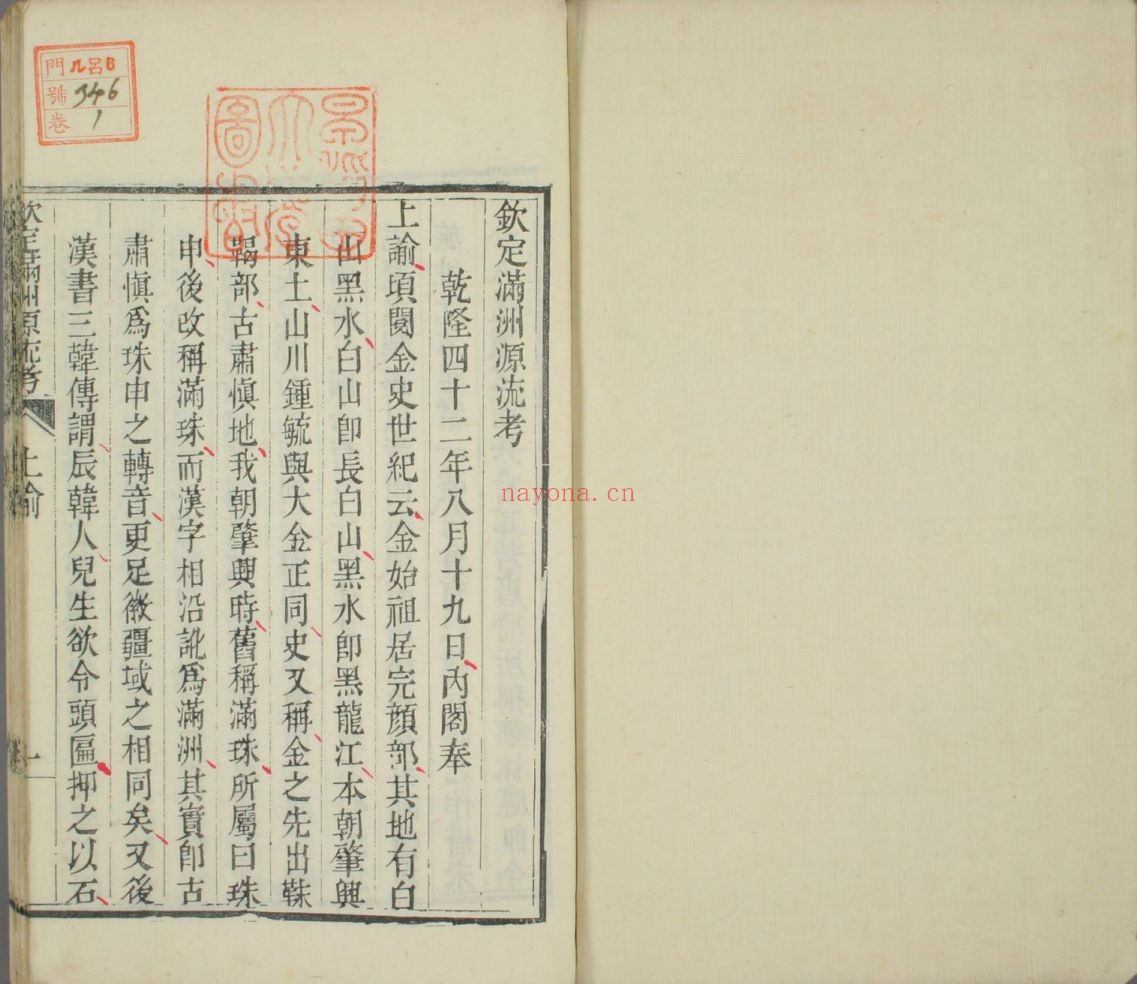 欽定滿洲源流考
乾隆四十二年八月十九日內閣奉
上諭頃閱金史世紀云金始祖居完顏部其地有白
山黑水白山卽長白山黑水卽黑龍江本朝肇興
東土山川鍾毓與大金正同史又稱金之先出靺
鞨部古肅愼地我朝肇興時舊稱滿珠所屬曰珠
申後改稱滿珠而漢字相沿訛爲滿洲其實卽古
肅愼爲珠申之轉音更足徵疆域之相同矣又後
漢書三韓傳謂辰韓人兒生欲令頭匾押之以石
欽定滿洲源流考
上諭
一
門 ル呂6
號 346
卷 1
nayona.cn